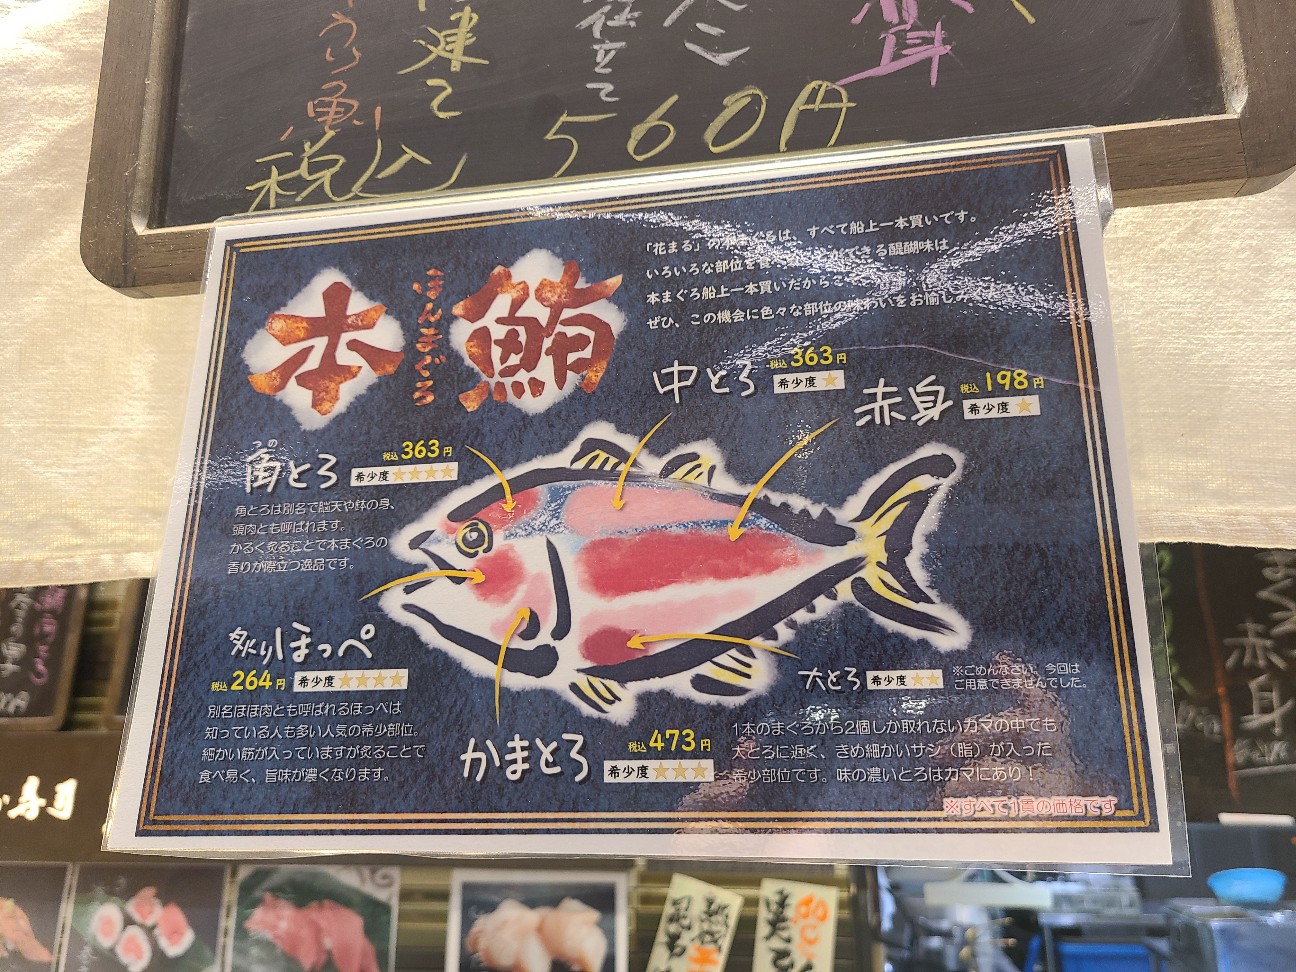 建て
仕立て
身
税込 560円
本鮪
ほんまぐろ
「花まる」の は、すべて船上一本買いです。
いろいろな部位を できる醍醐味は
本まぐろ船上一本買いだからこ
ぜひ、この機会に色々な部位の味わいをお愉しみ
中とろ 税込363円
希少度★
赤身 税込198円
希少度★
つの
角とろ 税込363円
希少度★★★★
角とろは別名で脳天や鉢の身、
頭肉とも呼ばれます。
かるく炙ることで本まぐろの
香りが際立つ逸品です。
炙りほっぺ
税込264円 希少度★★★★
別名ほほ肉とも呼ばれるほっぺは
知っている人も多い人気の希少部位。
細かい筋が入っていますが炙ることで
食べ易く、旨味が濃くなります。
かまとろ 税込473円
希少度★★★
大とろ 希少度★★
※ごめんなさい、今回は
ご用意できませんでした。
1本のまぐろから2個しか取れないカマの中でも
大とろに近く、きめ細かいサシ（脂）が入った
希少部位です。味の濃いとろはカマにあり！
※すべて1貫の価格です
寿司
赤身